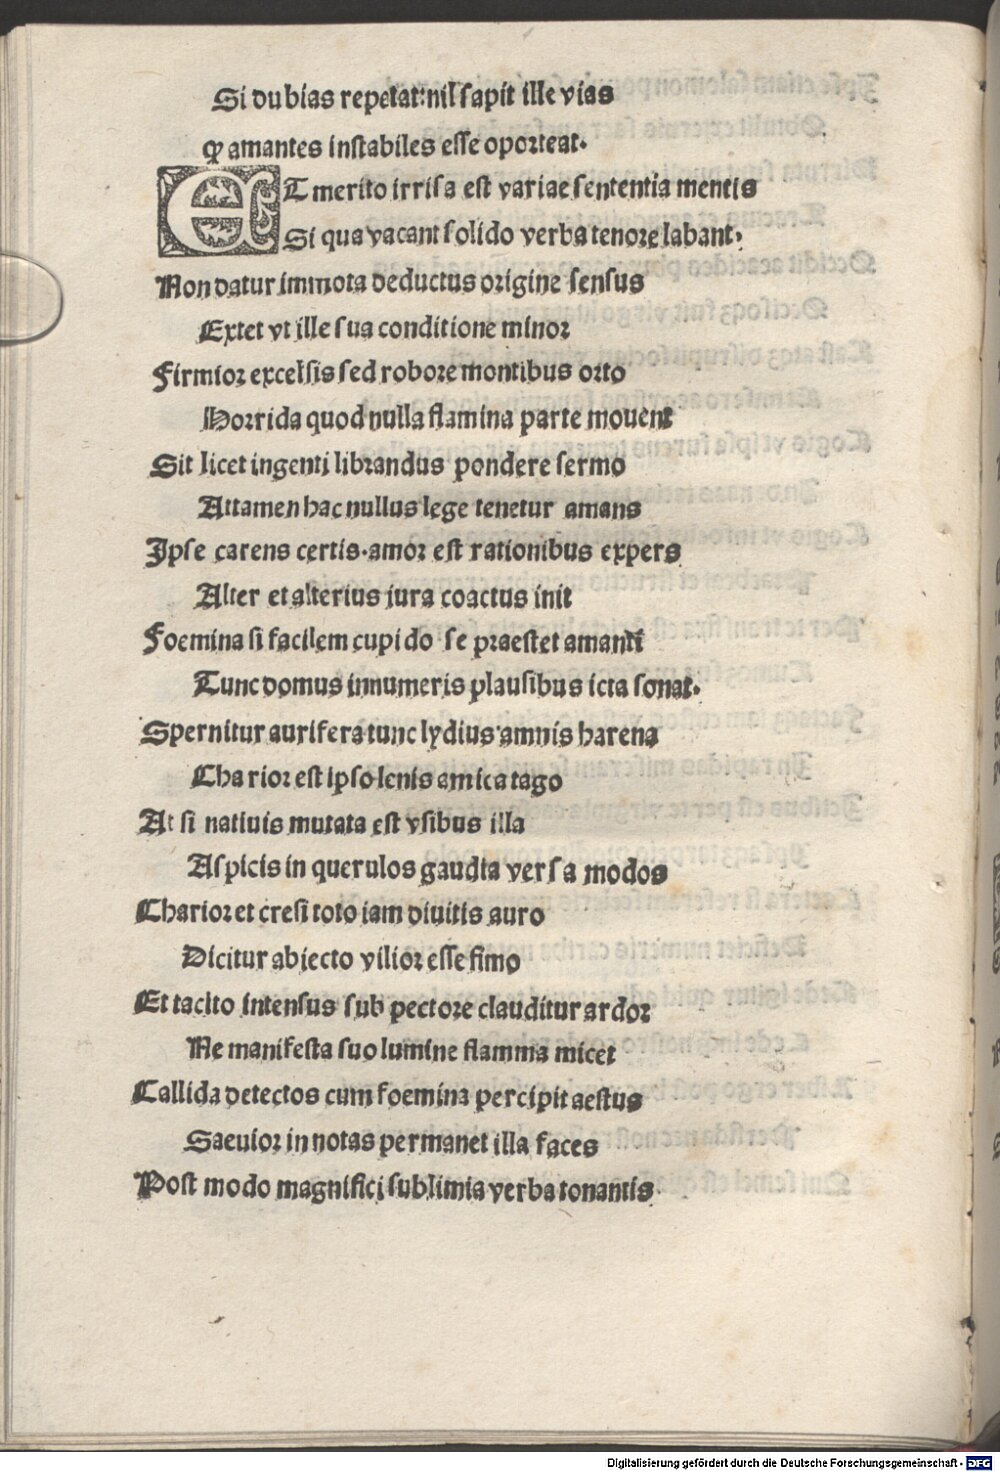 Si dubias repetat: nil sapit ille vias
ꝙ amantes instabiles esse oporteat.
ET merito irrisa est variae sententia mentis
Si qua vacant solido verba tenore labant,
Non datur immota deductus origine sensus
Extet vt ille sua conditione minor
Firmior excelsis sed robore montibus orto
Horrida quod nulla flamina parte mouent
Sit licet ingenti librandus pondere sermo
Attamen hac nullus lege tenetur amans
Ipse carens certis.amor est rationibus expers
Alter et alterius iura coactus init
Foemina si facilem cupido se praestet amanti
Tunc domus innumeris plausibus icta sonat.
Spernitur aurifera tunc lydius amnis harena
Charior est ipso lenis amica tago
At si natiuis mutata est vsibus illa
Aspicis in querulos gaudia versa modos
Charior et cresi toto iam diuitis auro
Dicitur abiecto vilior esse fimo
Et tacito intensus sub pectore clauditur ardor
Ne manifesta suo lumine flamma micet
Callida detectos cum foemina percipit aestus
Saeuior in notas permanet illa faces
Post modo magnifici sublimia verba tonantis
Digitalisierung gefördert durch die Deutsche Forschungsgemeinschaft - DFG